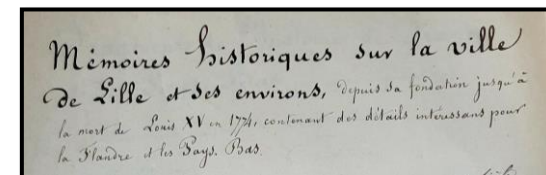 Mémoires historiques sur la ville
de Lille et ses environs, depuis sa fondation jusqu'à
la mort de Louis XV en 1774, contenant des détails intéressans pour
la Flandre et les Pays-Bas